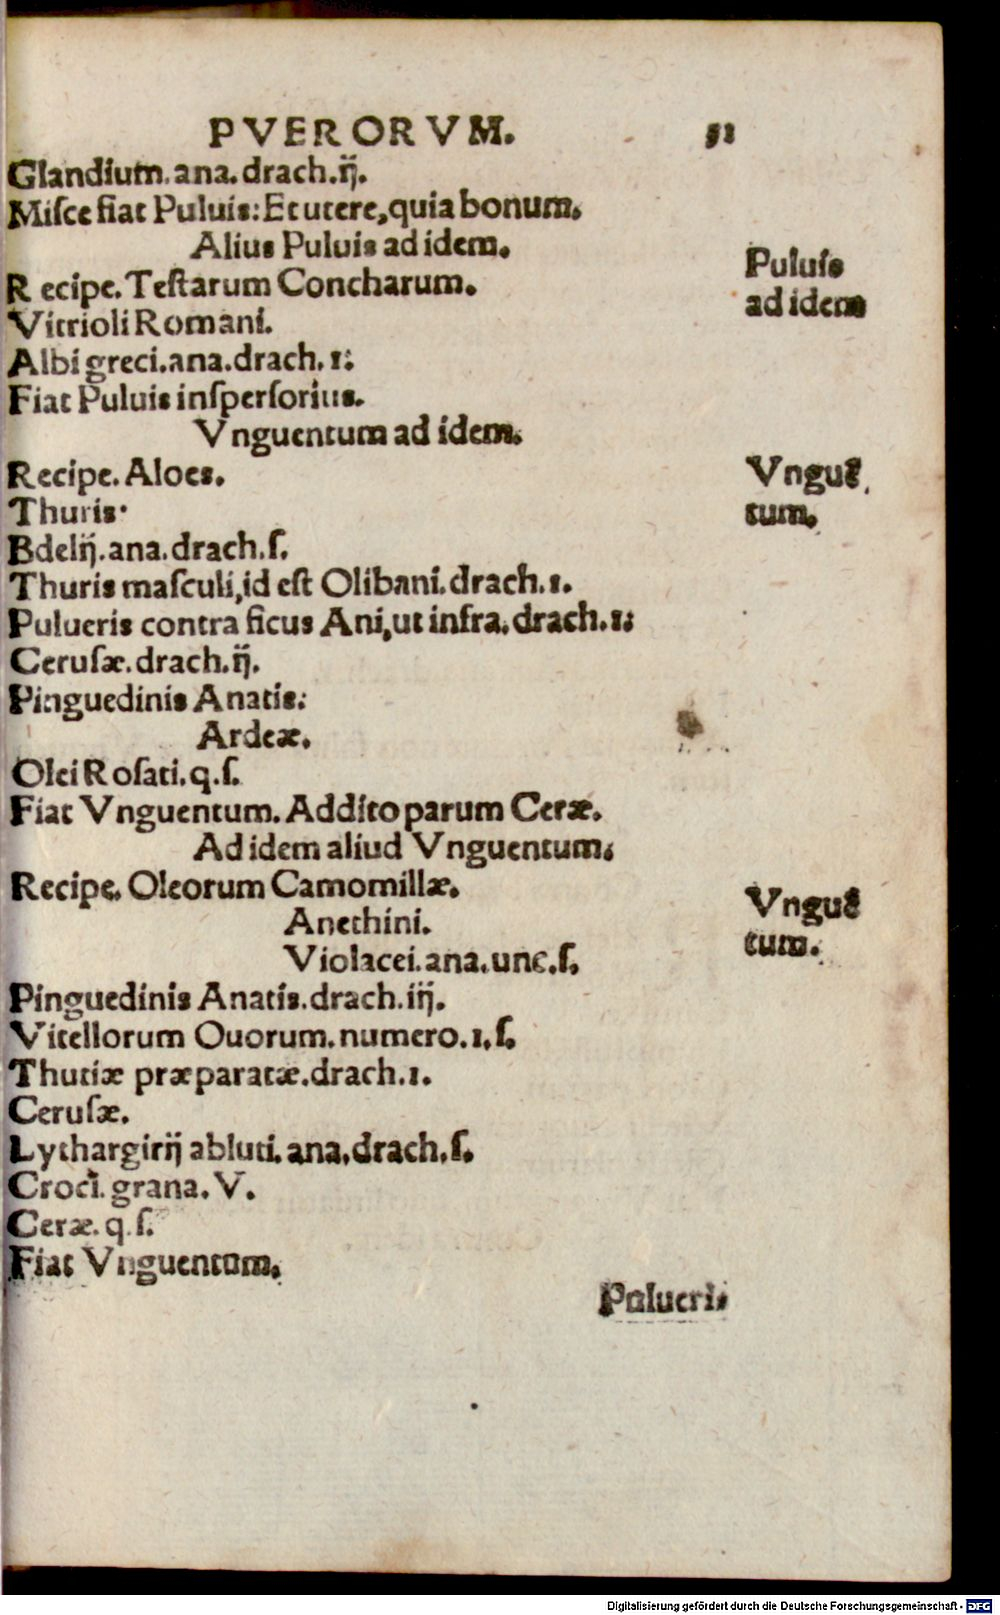 PVERORVM. 51
Glandium. ana. drach. ij.
Misce fiat Puluis: Et utere, quia bonum.
Alius Puluis ad idem.
Puluis
ad idem
Recipe. Testarum Concharum.
Vitrioli Romani.
Albi greci. ana. drach. 1:
Fiat Puluis inspersorius.
Vnguentum ad idem.
Recipe. Aloes.
Vnguẽ
tum.
Thuris.
Bdelij. ana. drach. ſ.
Thuris masculi, id est Olibani. drach. 1.
Pulueris contra ficus Ani, ut infra. drach. 1:
Cerusæ. drach. ij.
Pinguedinis Anatis:
Ardeæ.
Olei Rosati. q. ſ.
Fiat Vnguentum. Addito parum Ceræ.
Ad idem aliud Vnguentum.
Recipe. Oleorum Camomillæ.
Vnguẽ
tum.
Anethini.
Violacei. ana. unc. ſ.
Pinguedinis Anatis. drach. iij.
Vitellorum Ouorum. numero. 1. ſ.
Thutiæ præparatæ. drach. 1.
Cerusæ.
Lythargirij abluti. ana. drach. ſ.
Croci. grana. V.
Ceræ. q. ſ.
Fiat Vnguentum.
Pulueris
Digitalisierung gefördert durch die Deutsche Forschungsgemeinschaft - DFG